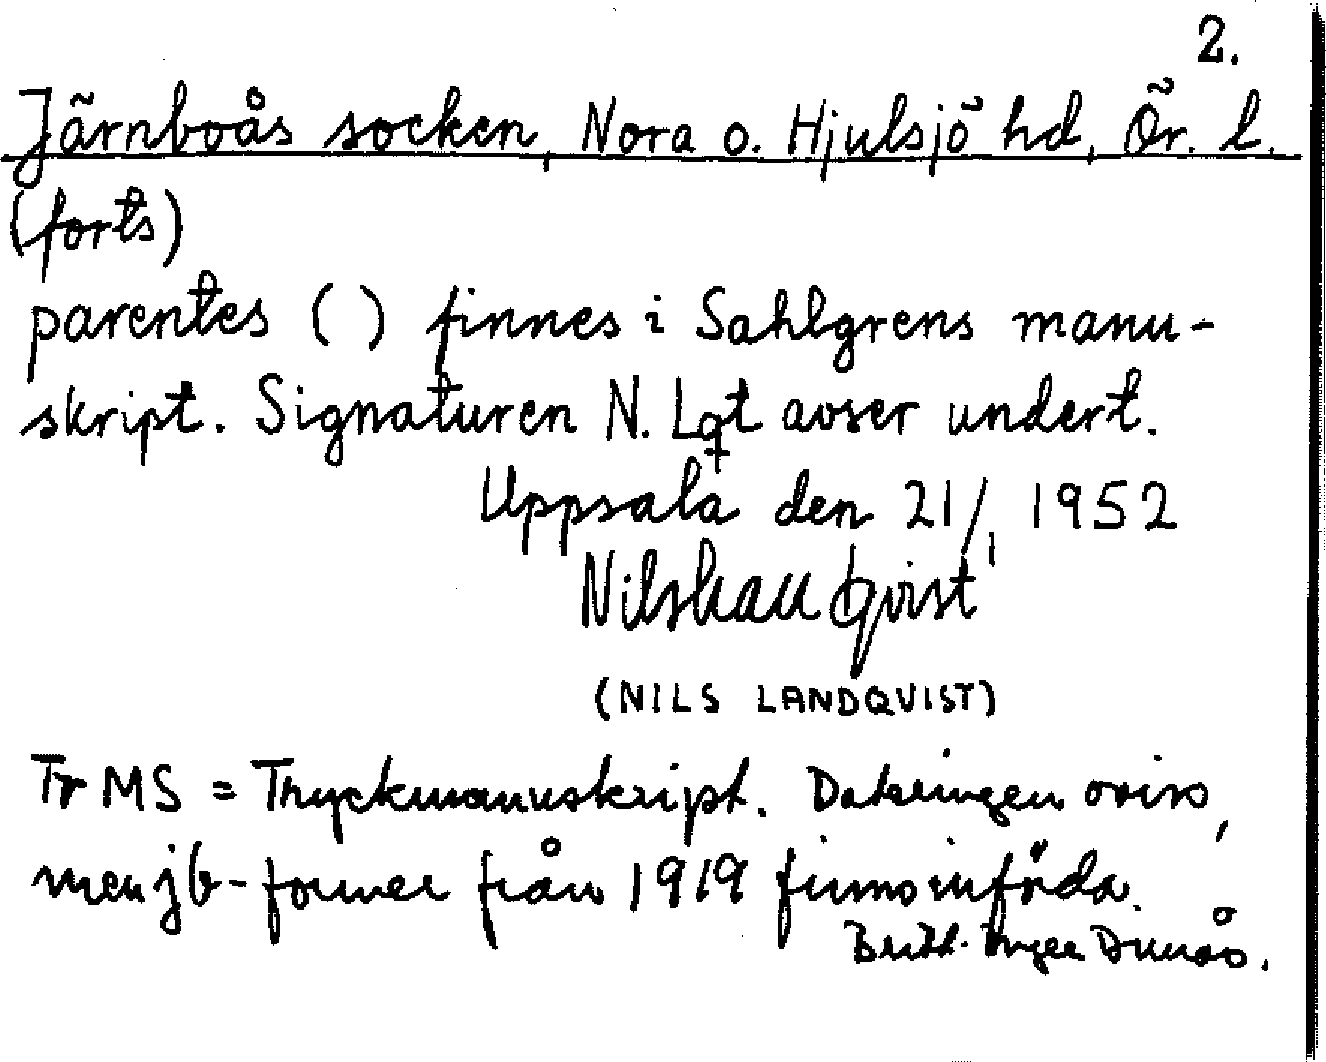 2.
Järnboås socken, Nora o. Hjulsjö hd, Ör. l.
(forts)
parentes ( ) finnes i Sahlgrens manu-
skript. Signaturen N. Lqt avser undert.
Uppsala den 21/1 1952
Nils Landqvist
(NILS LANDQVIST)
Tr MS = Tryckmanuskript. Dateringen oviss,
men jb-former från 1919 finns införda.
Britt-Inger